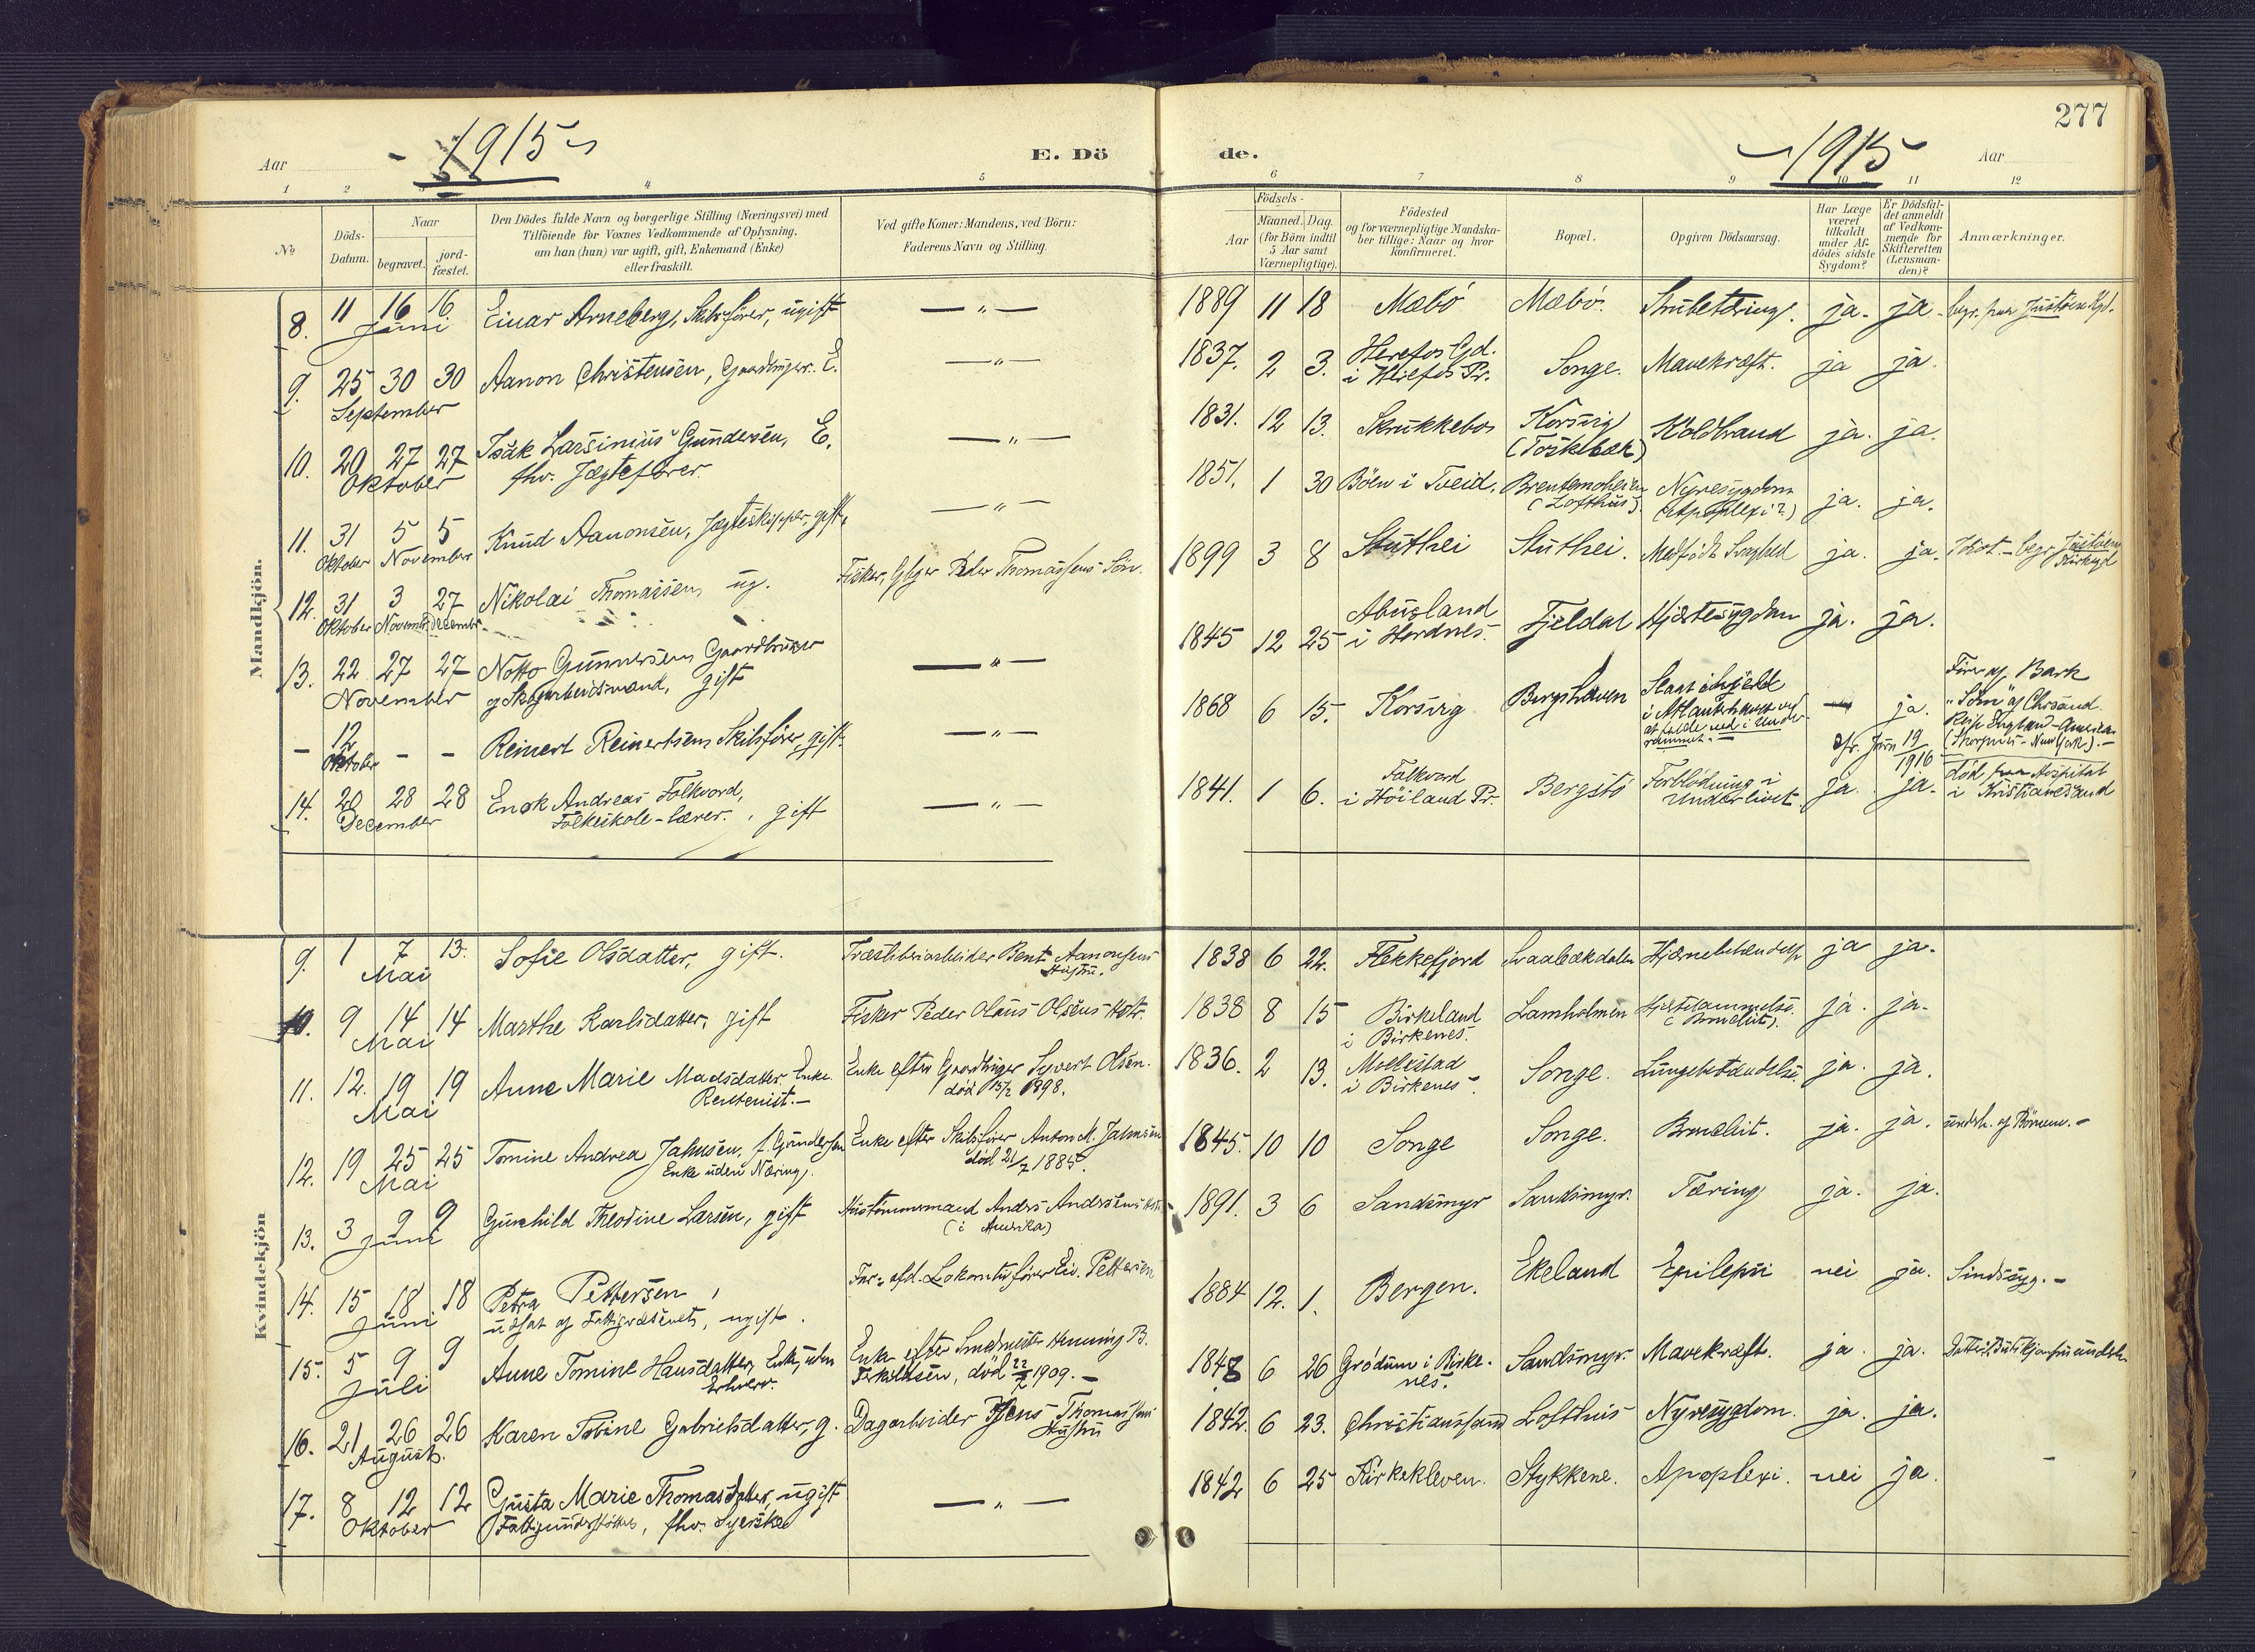 277
- 1915 -
E. Dö
de.
- 1915 -
Aar
Aar
1 2 3 4 5 6 7 8 9 10 11 12
No
Döds-Datum.
Naar
begravet.
jord-fæstet.
Den Dödes fulde Navn og borgerlige Stilling (Næringsvei) med
Tilföiende for Voxnes Vedkommende af Oplysning,
om han (hun) var ugift, gift, Enkemand (Enke)
eller fraskilt.
Ved gifte Koner: Mandens, ved Börn:
Faderens Navn og Stilling.
Födsels-
Aar
Maaned. Dag.
(for Börn indtil
5 Aar samt
Værnepligtige).
Födested
og for værnepligtige Mandska-
ber tillige: Naar og hvor
konfirmeret.
Bopæl.
Opgiven Dödsaarsag.
Har Læge
været
tilkaldt
under Af-
dödes sidste
Sygdom?
Er Dödsfal-
det anmeldt
af Vedkom-
mende for
Skifteretten
(Lensman-
den)?
Anmærkninger.
Mandkjön.
8. 11 16 16 Juni Einar Arneberg, Skibsfører, ugift — " — 1889 11 18 Mæbö Mæbö. Strubetæring. ja. ja.
9. 25 30 30 September Aanon Christensen, E. — " — 1837. 2 3. Songe. Mavekræft. ja ja
10. 20 27 27 Oktober Isak Larsinius Gundersen, E.
fhv. Jægtefører. — " — 1831. 12 13. Skrukkebo Korsvig Koldbrand ja. ja.
11. 31 Oktober 5 5 November Knud Aanonsen, Jægteskipper, gift. — " — 1851. 1 30 Böen i Tveid. (Lofthus) Nyresygdom
(Apoplexi?) ja. ja.
12. 31 Oktober 3 Novembr. 27 Decembr. Nikolai Thomassen, ug. Fisker, Peder Thomassens Sön. 1899 3 8 Stuthei Stuthei. Medfödt Svaghed ja. ja. Idiot. - begr. Justöen
Kirkegd
13. 22 27 27 November Notto Gunnersen, Gaardbruger
og Skogarbeidsmand, gift — " — 1845 12 25 Abusland
i Herdnes. Fjeldal Hjertesygdom ja. ja.
- 12 Oktober - - Reinert Reinertsen, Skibsfører, gift. — " — 1868 6 15. Korsvig Slaat ihjelde
i Atlanterhavet ved
at falde ned i Under-
rummet. — ja. Förer af Bark
"Söm" af Chrsand.
Reise England - Amerika
14. 20 28 28 December Enok Andreas Folkvord,
Folkeskole-lærer., gift — " — 1841. 1 6. Folkvord
i Höiland Pr. Bergstö Forblödning i
Underlivet ja. ja. död Hospital
i Kristiansand
Kvindekjön
9. 1 7 13. Mai Sofie Olsdatter, gift. Bent Aanonsens
Hustru. 1838 6 22. Flekkefjord Svaabækdalen Hjernebetændelse ja ja.
10. 9 14 14 Mai Marthe Karlsdatter, gift Fisker Peder Olaus Olsens Hstr. 1838 8 15 Birkeland
i Birkenes. Lamholmen Hjertelammelse
(Bronchit). ja. ja.
11. 12. 19 19 Mai Anne Marie Madsdatter. Enke.
Rentenist. - Enke efter Gaardbruger Syvert Olsen.
död 1898. 1836. 2 13. Mollestad
i Birkenes. Songe. Lungebetændelse. ja. ja.
12. 19 25 25 Mai Tomine Andrea Jahnsen, f. Gundersen
Enke uden Næring. Enke efter Skibsfører Anton M. Jahnsen
död 21/7 1885. 1845. 10 10 Songe Songe. Bronchit. ja. ja. underh. af Börnene. -
13. 3 9 9 Juni Gunhild Theodine Larsen, gift Hustömmermand Andrs Andrsens Hstr.
(i Amerika) 1891. 3 6 Sandsmyr Sandsmyr. Tæring ja. ja.
14. 15 18 18 Juni Petra Pettersen,
udsat af Fattigvæsenet, ugift. Far: afd. Lokomotivförer Pettersen 1884 12. 1. Bergen. Ekeland Epilepsi nei ja. Sindssyg. -
15. 5 9 9 Juli Anne Tomine Hansdatter, Enke, uden
Erhverv. Enke efter Smedmester Henning B.
Terkildsen, död 22/2 1909. - 6 26 Grödum i Birke-
nes. Sandsmyr. Mavekræft. ja. ja.
16. 21 26 26 August. Karen Tobine Gabrielsdatter, g. Dagarbeider Jens Thomassens
Hustru 1842. 6 23. Christianssand Lofthus Nyresygdom. ja. ja.
17. 8 12 12 Oktober Gusta Marie Thomasdatter, ugift
Fattigunderstöttet, fhv. Syerske — " — 1842 6 25 Kirkekleven. Stykkene. Apoplexi. nei ja.